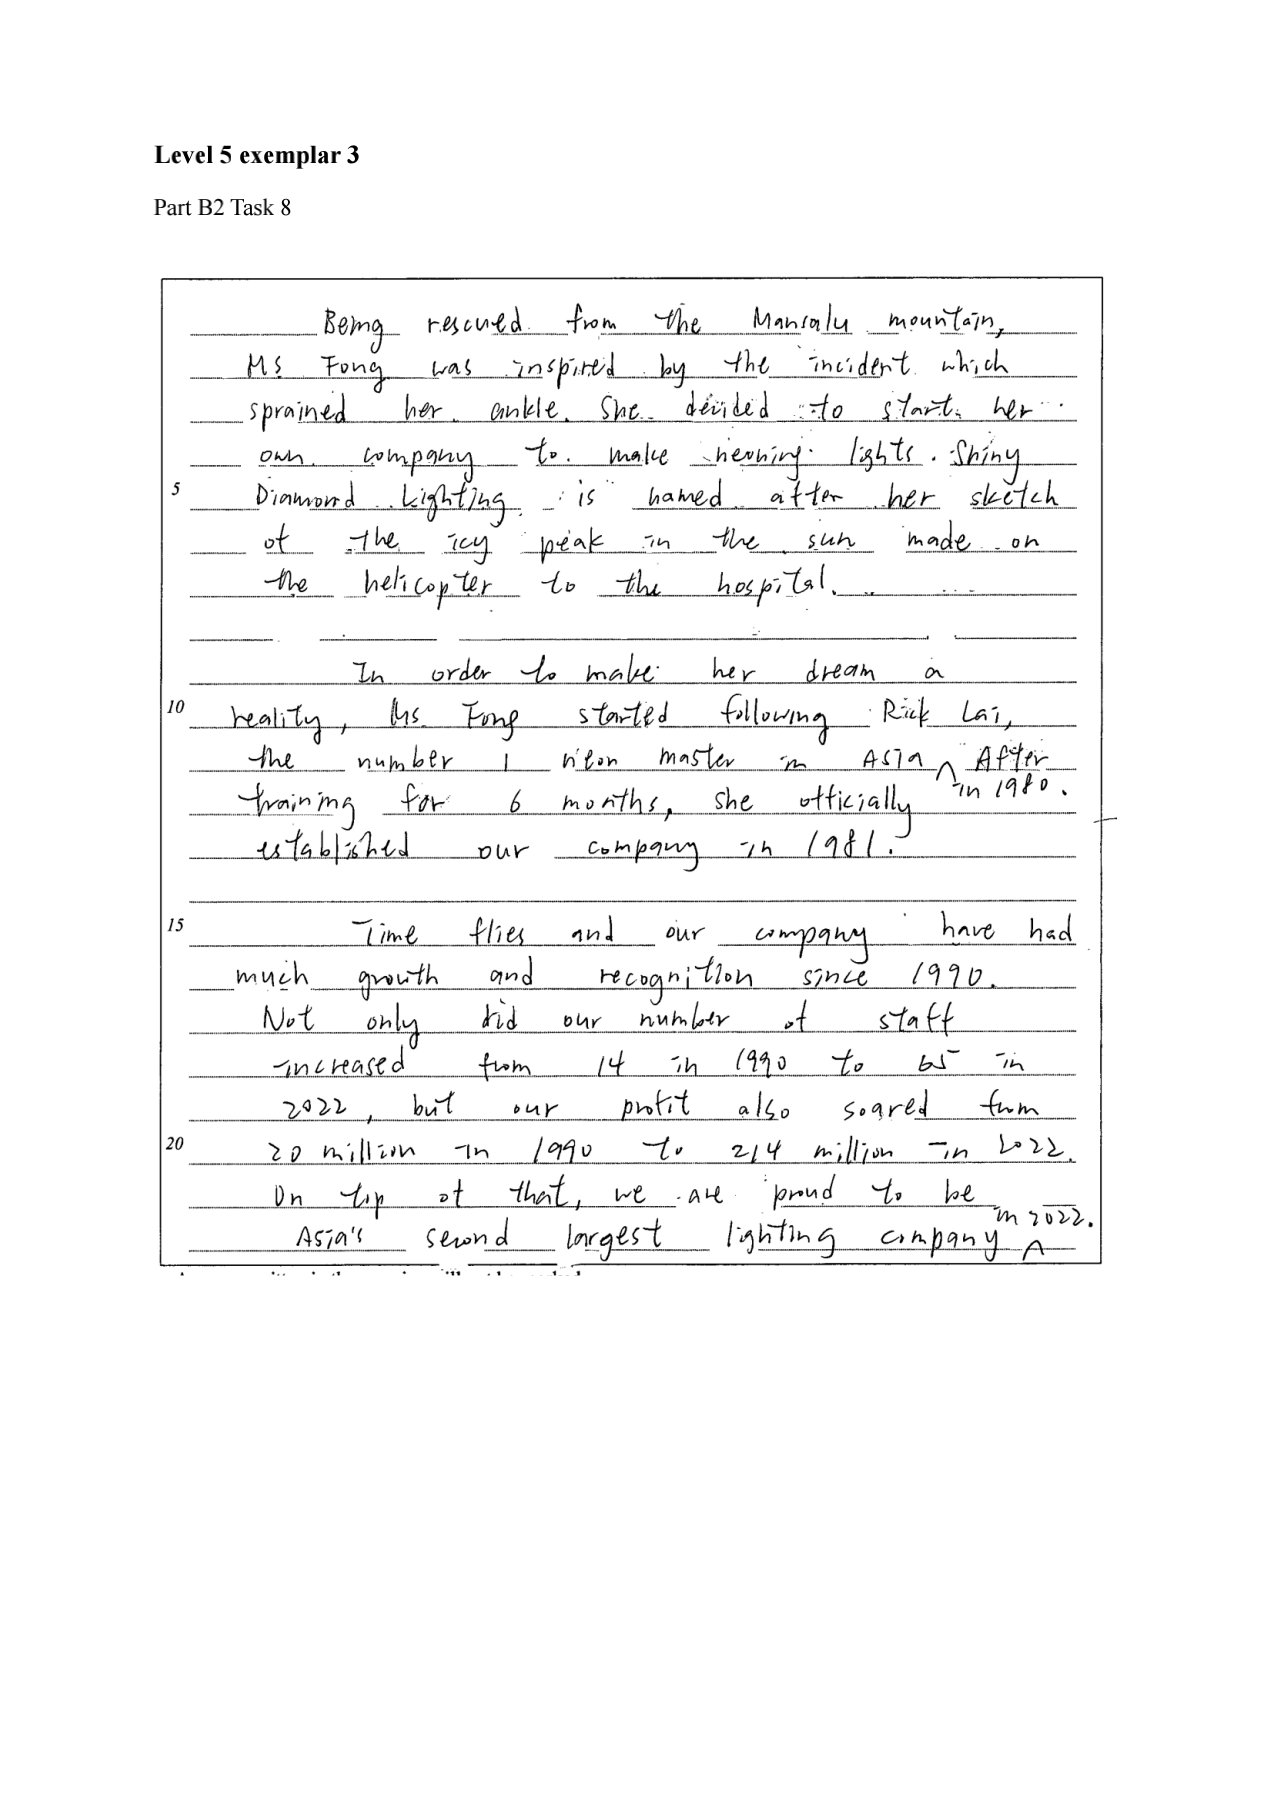 Level 5 exemplar 3
Part B2 Task 8
Being rescued from the Mansalu mountain,
Ms Fong was inspired by the incident which
sprained her ankle. She decided to start her
own company to make neoning lights. Shiny
5 Diamond Lighting is named after her sketch
of the icy peak in the sun made on
the helicopter to the hospital.
In order to make her dream a
10 reality, Ms Fong started following Rick Lai,
the number 1 neon master in Asia in 1980. After
training for 6 months, she officially
established our company in 1981.
15 Time flies and our company have had
much growth and recognition since 1990.
Not only did our number of staff
increased from 14 in 1990 to 65 in
2022, but our profit also soared from
20 20 million in 1990 to 214 million in 2022.
On top of that, we are proud to be
Asia's second largest lighting company in 2022.